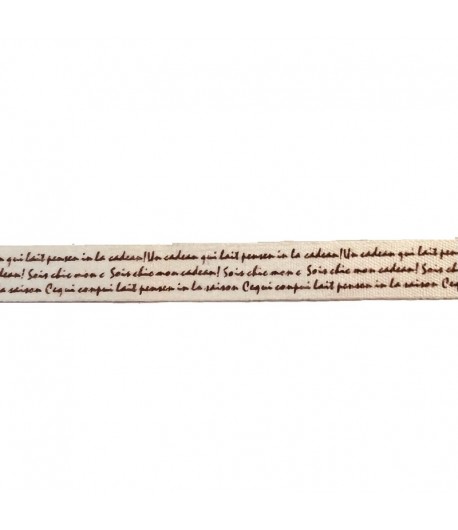 n qui lait pensen in la cadeau! Un cadeau qui lait pensen in la cadeau! Un cadeau qui lait pensen
deau! Sois chic mon c Sois chic mon cadeau! Sois chic mon c Sois chic mon cadeau! Sois
a saison Cequi conpui lait pensen in la saison Cequi conpui lait pensen in la saison Ceq